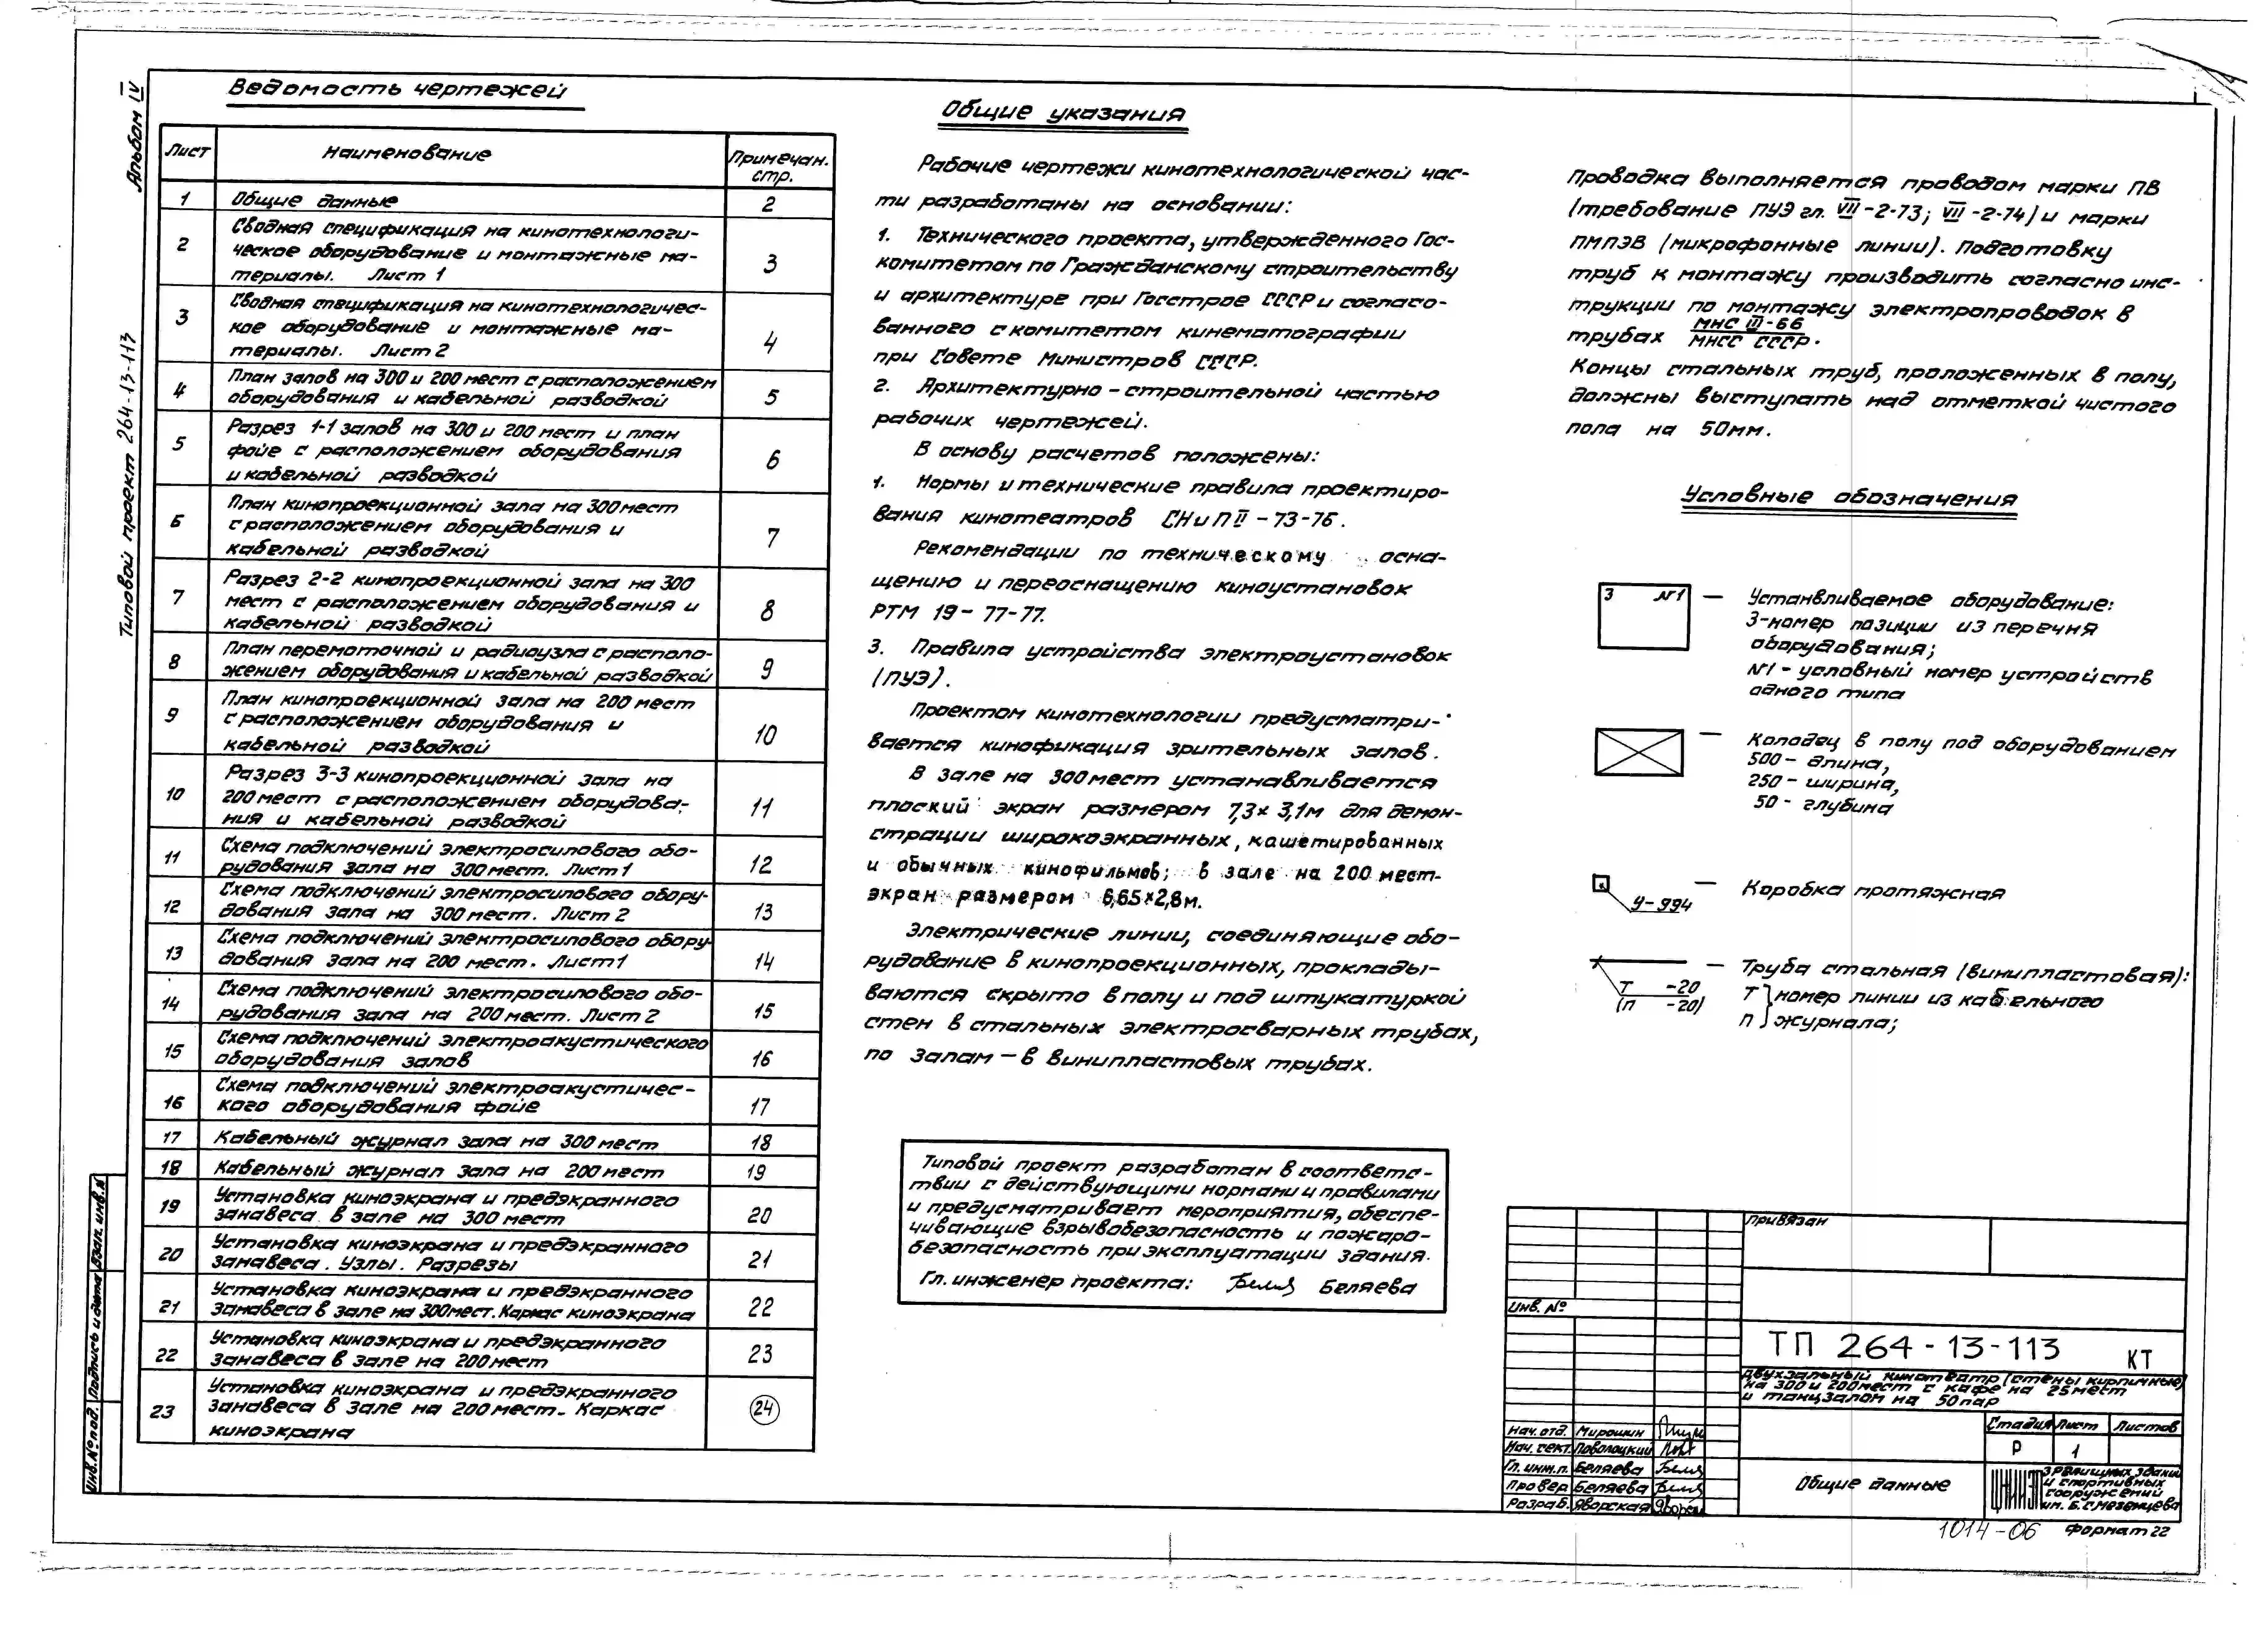 Альбом IV
Типовой проект 264-13-113
Ведомость чертежей
Лист Наименование Примечан. стр.
1 Общие данные 2
2 Сводная спецификация на кинотехнологи-
ческое оборудование и монтажные ма-
териалы. Лист 1 3
3 Сводная спецификация на кинотехнологичес-
кое оборудование и монтажные ма-
териалы. Лист 2 4
4 План залов на 300 и 200 мест с расположением
оборудования и кабельной разводкой 5
5 Разрез 1-1 залов на 300 и 200 мест и план
фойе с расположением оборудования
и кабельной разводкой 6
6 План кинопроекционной зала на 300 мест
с расположением оборудования и
кабельной разводкой 7
7 Разрез 2-2 кинопроекционной зала на 300
мест с расположением оборудования и
кабельной разводкой 8
8 План перемоточной и радиоузла с располо-
жением оборудования и кабельной разводкой 9
9 План кинопроекционной зала на 200 мест
с расположением оборудования и
кабельной разводкой 10
10 Разрез 3-3 кинопроекционной зала на
200 мест с расположением оборудова-
ния и кабельной разводкой 11
11 Схема подключений электросилового обо-
рудования зала на 300 мест. Лист 1 12
12 Схема подключений электросилового обору-
дования зала на 300 мест. Лист 2 13
13 Схема подключений электросилового обору-
дования зала на 200 мест. Лист 1 14
14 Схема подключений электросилового обо-
рудования зала на 200 мест. Лист 2 15
15 Схема подключений электроакустического
оборудования залов 16
16 Схема подключений электроакустичес-
кого оборудования фойе 17
17 Кабельный журнал зала на 300 мест 18
18 Кабельный журнал зала на 200 мест 19
19 Установка киноэкрана и предэкранного
занавеса в зале на 300 мест 20
20 Установка киноэкрана и предэкранного
занавеса. Узлы. Разрезы 21
21 Установка киноэкрана и предэкранного
занавеса в зале на 300 мест. Каркас киноэкрана 22
22 Установка киноэкрана и предэкранного
занавеса в зале на 200 мест 23
23 Установка киноэкрана и предэкранного
занавеса в зале на 200 мест. Каркас
киноэкрана 24
Общие указания
Рабочие чертежи кинотехнологической час-
ти разработаны на основании:
1. Технического проекта, утвержденного Гос-
комитетом по Гражданскому строительству
и архитектуре при Госстрое СССР и согласо-
ванного с комитетом кинематографии
при Совете Министров СССР.
2. Архитектурно-строительной частью
рабочих чертежей.
В основу расчетов положены:
1. Нормы и технические правила проектиро-
вания кинотеатров СНиП II-73-76.
Рекомендации по техническому осна-
щению и переоснащению киноустановок
РТМ 19-77-77.
3. Правила устройства электроустановок
(ПУЭ).
Проектом кинотехнологии предусматри-
вается кинофикация зрительных залов.
В зале на 300 мест устанавливается
плоский экран размером 7,3х3,1м для демон-
страции широкоэкранных, кашетированных
и обычных кинофильмов; в зале на 200 мест-
экран размером 6,65×2,8м.
Электрические линии, соединяющие обо-
рудование в кинопроекционных, проклады-
ваются скрыто в полу и под штукатуркой
стен в стальных электросварных трубах,
по залам – в винипластовых трубах.
Типовой проект разработан в соответс-
твии с действующими нормами и правилами
и предусматривает мероприятия, обеспе-
чивающие взрывобезопасность и пожаро-
безопасность при эксплуатации здания.
Гл. инженер проекта: Беляева
Проводка выполняется проводом марки ПВ
(требование ПУЭ гл. VII-2-73; VII-2-74) и марки
ПМПЭВ (микрофонные линии). Подготовку
труб к монтажу производить согласно инс-
трукции по монтажу электропроводок в
трубах МНС III-66
МНСС СССР.
Концы стальных труб, проложенных в полу,
должны выступать над отметкой чистого
пола на 50мм.
Условные обозначения
3 №1 — Устанвливаемое оборудование:
3-номер позиции из перечня
оборудования;
№1 - условный номер устройств
одного типа
— Колодец в полу под оборудованием
500- длина,
250- ширина,
50- глубина
У-994 — Коробка протяжная
Т -20
(П -20)
— Труба стальная (винипластовая):
Т } номер линии из кабельного
П } журнала;
Взам. инв. №
Подпись и дата
Инв. № под.
Привязан
Инв. №
ТП 264-13-113 КТ
Двухзальный кинотеатр (стены кирпичные)
на 300 и 200 мест с кафе на 25 мест
и танцзалом на 50 пар
Нач. отд. Мирошин
Нач. сект. Поволоцкий
Гл. инж. п. Беляева
Провер. Беляева
Разраб. Яворская
Стадия Лист Листов
Р 1
Общие данные
ЦНИИЭП зрелищных зданий
и спортивных
сооружений
им. Б.С. Мезенцева
1014-06 Формат 22